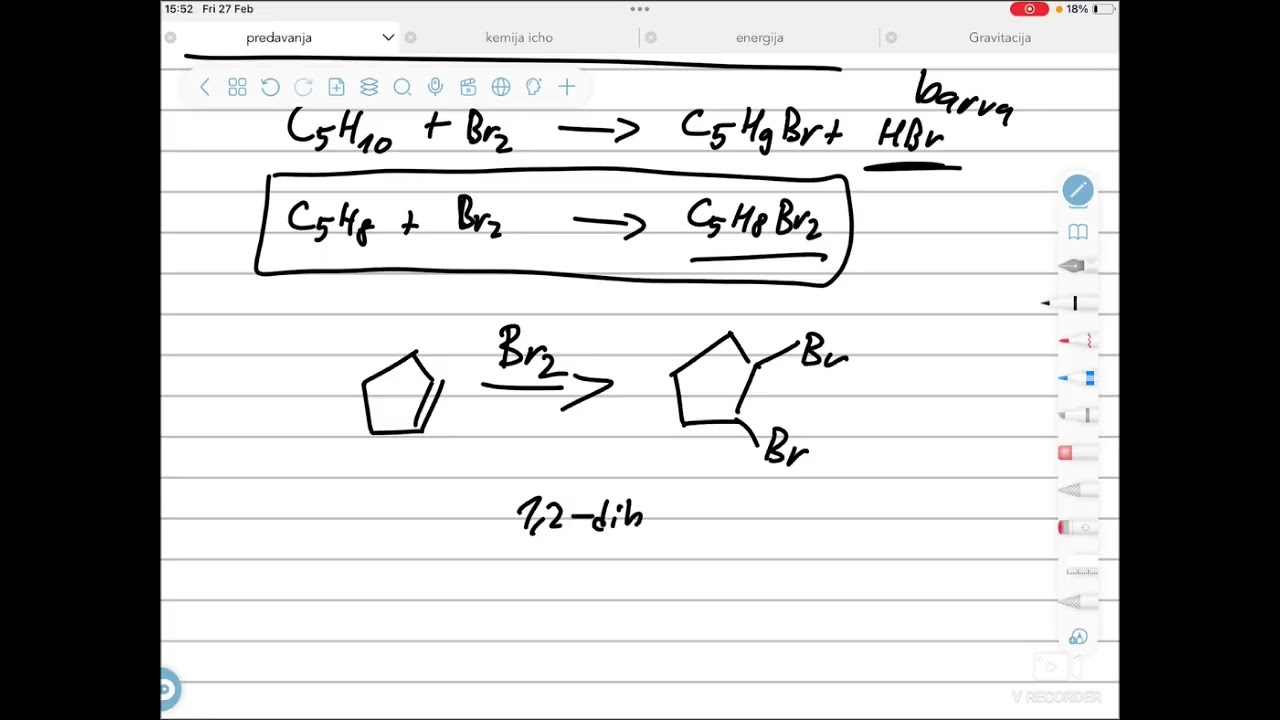 15:52 Fri 27 Feb
18%
predavanja
kemija icho
energija
Gravitacija
barva
C₅H₁₀ + Br₂ → C₅H₉Br + HBr
C₅H₈ + Br₂ → C₅H₈Br₂
Br₂
Br
Br
1,2-dib
V RECORDER